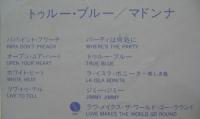 トゥルー・ブルー／マドンナ
パパ・ドント・プリーチ
PAPA DON'T PREACH
オープン・ユア・ハート
OPEN YOUR HEART
ホワイト・ヒート
WHITE HEAT
リヴ・トゥ・テル
LIVE TO TELL
パーティは何処に
WHERE'S THE PARTY
トゥルー・ブルー
TRUE BLUE
ラ・イスラ・ボニータ〜美しき島
LA ISLA BONITA
ジミー・ジミー
JIMMY JIMMY
ラヴ・メイクス・ザ・ワールド・ゴー・ラウンド
LOVE MAKES THE WORLD GO ROUND